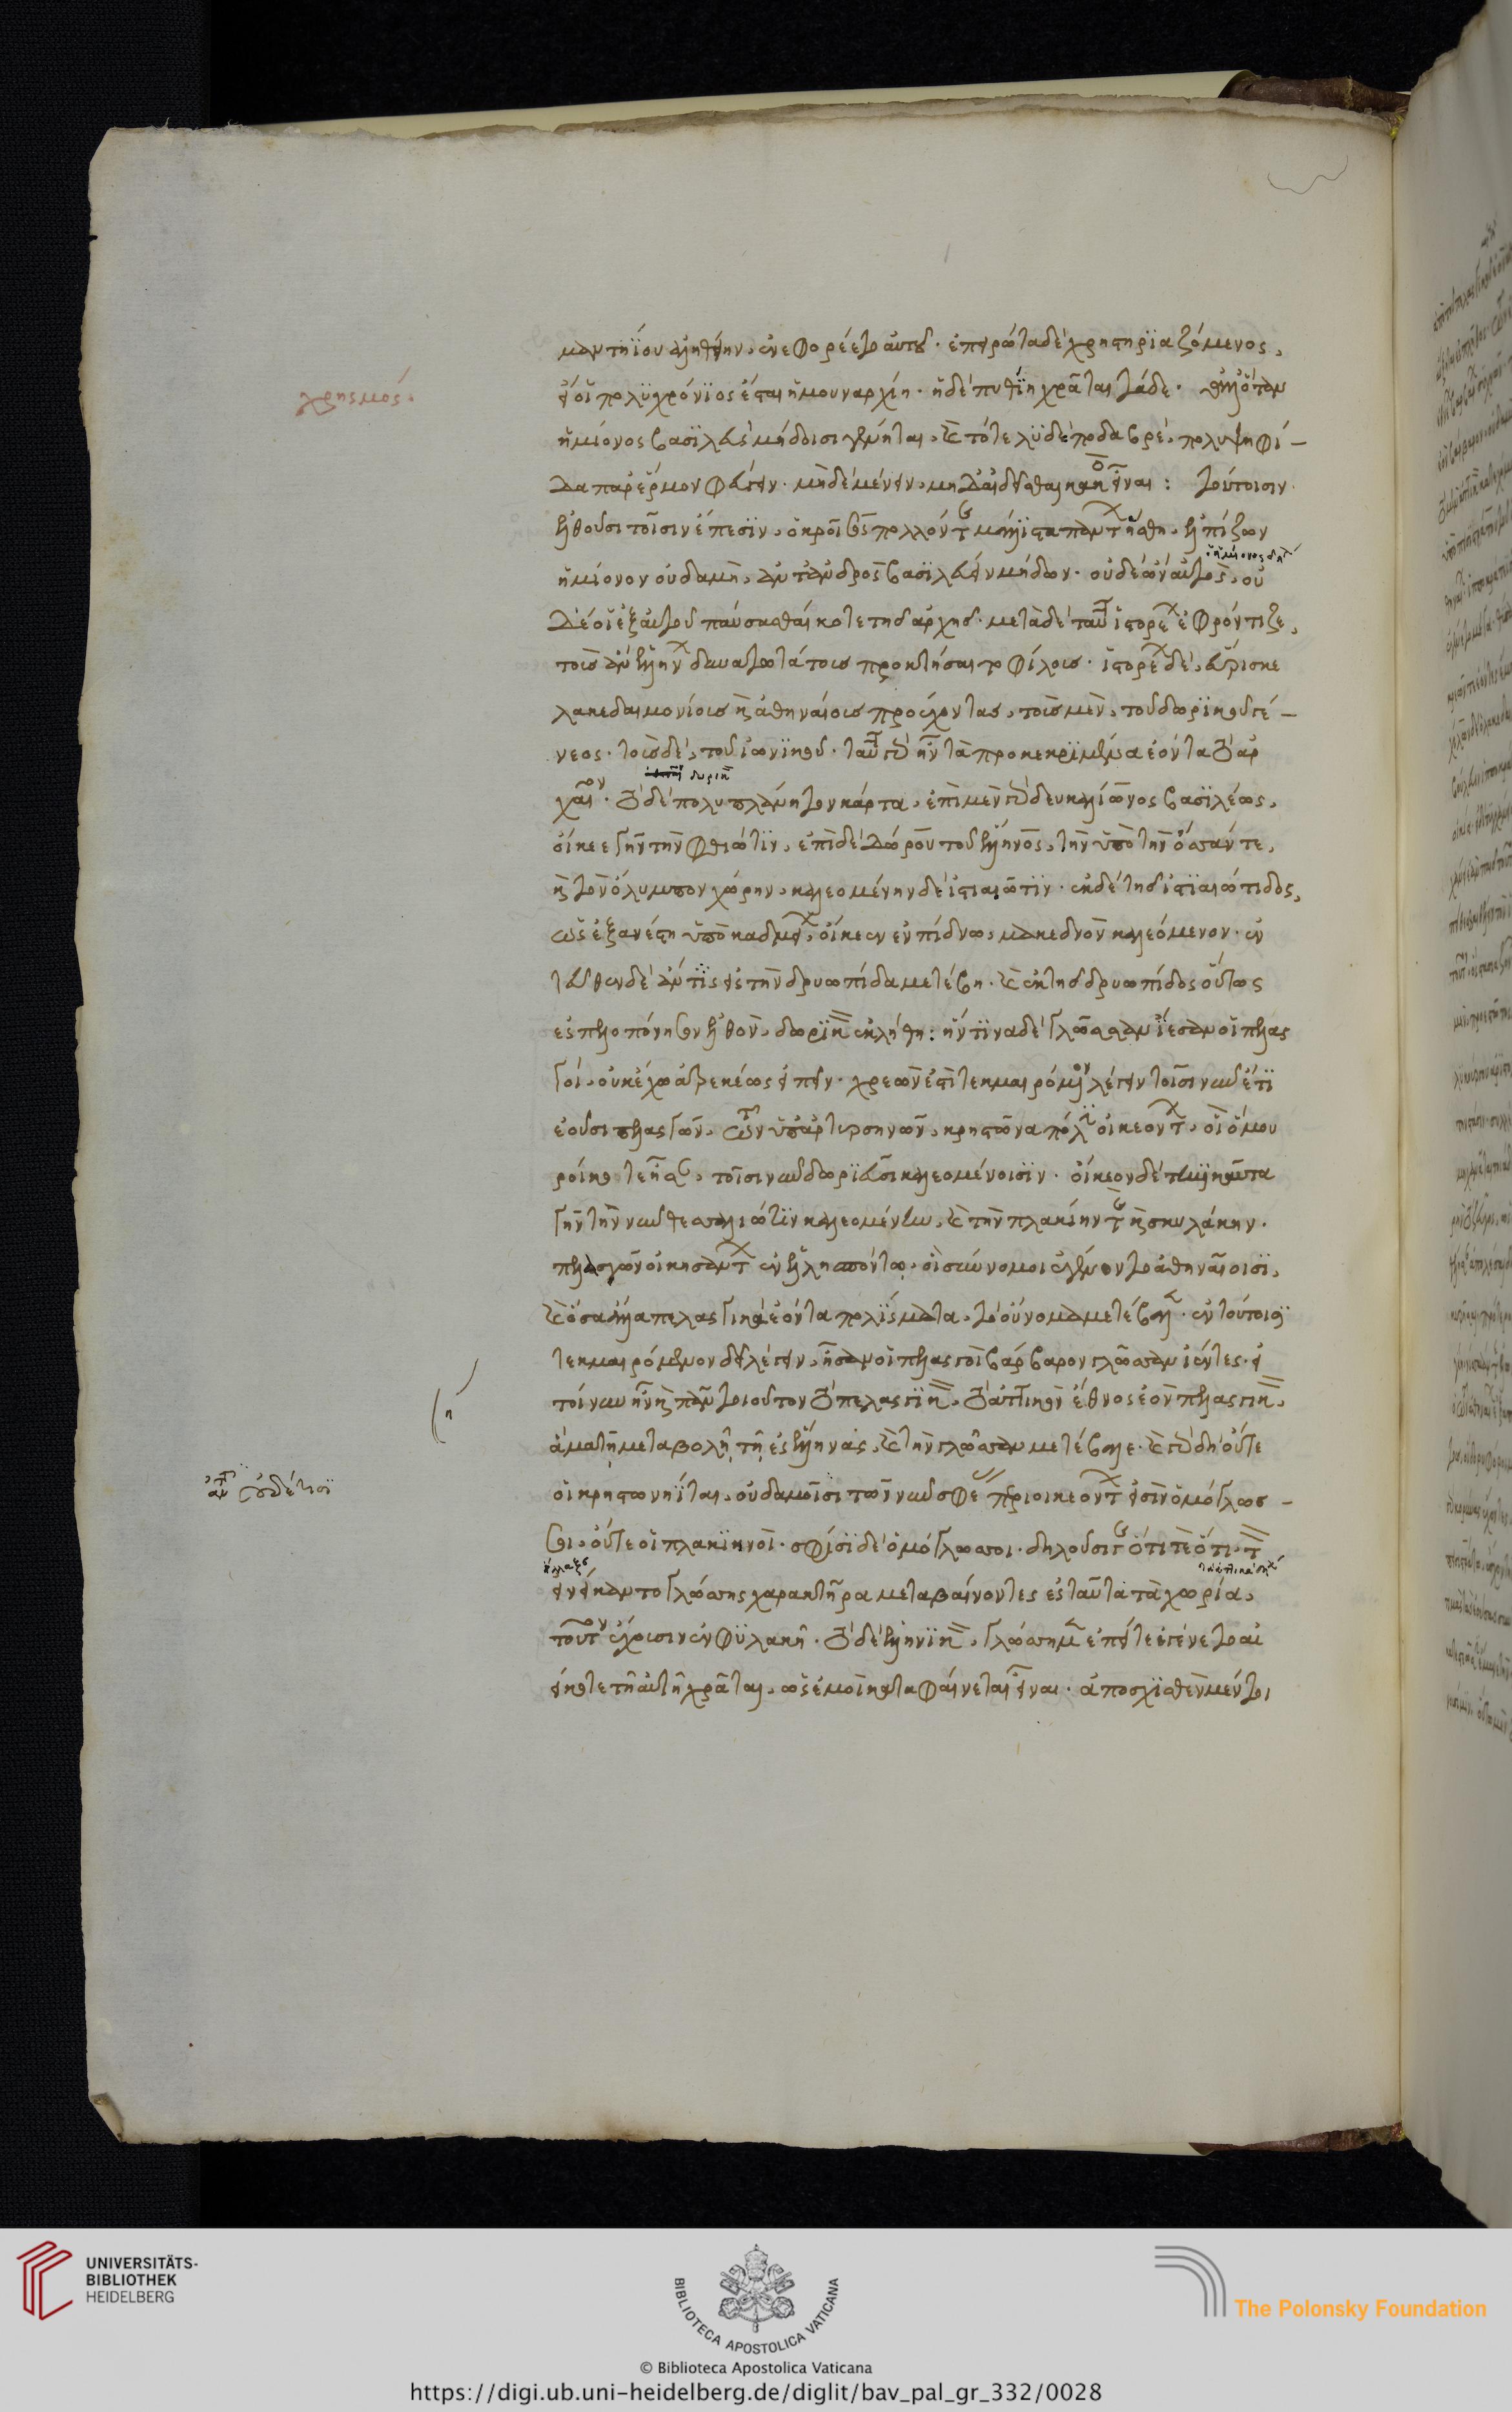 μαντηΐου ἀληθείην, ἐνεφορέετο αὐτοῦ. ἐπειρώτα δὲ χρηστηριαζόμενος,
χρησμός.
εἴ οἱ πολυχρόνιος ἔσται ἡ μουναρχίη. ἡ δὲ πυθίη χρᾶται τάδε. ἀλλ' ὅταν
ἡμίονος βασιλεὺς μήδοισι γένηται, καὶ τότε λυδὲ ποδαβρὲ, πολυψηφί-
δα παρ' ἕρμον φεύγειν. μηδὲ μένειν, μηδ' αἰδεῖσθαι κακὸς εἶναι: τούτοισιν
ἐλθοῦσι τοῖσιν ἔπεσιν, ὁ κροῖσος πολλόν τι μάλιστα πάντων ἥσθη, ἐλπίζων
ἡμίονον οὐδαμὴ, ἀντ' ἀνδρὸς βασιλεύειν μήδων. οὐδὲ ὧν αὐτὸς, οὐ
δὲ οἱ ἐξ αὐτοῦ παύσεσθαί κοτε τῆς ἀρχῆς. μετὰ δὲ ταῦτα ἱστορέων ἐφρόντιζε,
τοὺς ἂν ἑλλήνων δυνατωτάτους προσκτήσαιτο φίλους. ἱστορέων δὲ, εὕρισκε
λακεδαιμονίους καὶ ἀθηναίους προέχοντας, τοὺς μὲν, τοῦ δωρικοῦ γέ-
νεος. τοὺς δὲ, τοῦ ἰωνικοῦ. ταῦτα γὰρ ἦν τὰ προκεκριμένα ἐόντα τὸ ἀρ
δωρικὸν
χαῖον. τὸ δὲ πολυπλάνητον κάρτα, ἐπὶ μὲν γὰρ δευκαλίωνος βασιλέως,
οἴκεε γῆν τὴν φθιῶτιν, ἐπὶ δὲ δώρου τοῦ ἕλληνος, τὴν ὑπὸ τὴν ὄσσάν τε,
καὶ τὸν ὄλυμπον χώρην, καλεομένην δὲ ἱστιαιῶτιν. ἐκ δὲ τῆς ἱστιαιώτιδος,
ὡς ἐξανέστη ὑπὸ καδμείων, οἴκεεν ἐν πίδνω, μακεδνὸν καλεόμενον. ἐν
τεῦθεν δὲ αὖτις εἰς τὴν δρυωπίδα μετέβη. καὶ ἐκ τῆς δρυωπίδος οὕτως
ἐς πελοπόνησον ἐλθὸν, δωρικὸν ἐκλήθη: ἥντινα δὲ γλῶσσαν ἵεσαν οἱ πελασ
γοὶ, οὐκ ἔχω ἀτρεκέως εἰπεῖν. χρεὼν ἐστὶ τεκμαιρόμενον λέγειν τοῖσι νῦν ἔτι
ἐοῦσι πελασγῶν, τῶν ὑπὲρ τυρσηνῶν, κρηστῶνα πόλιν οἰκεόντων, οἳ ὅμου
ροί κοτε ἦσαν, τοῖσι νῦν δωριεῦσι καλεομένοισιν. οἴκεον δὲ τηνικαῦτα
γῆν τὴν νῦν θεσσαλιῶτιν καλεομένην, καὶ τὴν πλακίην τε καὶ σκυλάκην.
πελασγῶν οἰκησάντων ἐν ἑλλησπόντῳ, οἳ σύνομοι ἐγένοντο ἀθηναίοισι,
καὶ ὅσα ἄλλα πελασγικὰ ἐόντα πολίσματα, τὸ οὔνομα μετέβαλε. εἰ τούτοισι
τεκμαιρόμενον δεῖ λέγειν, ἦσαν οἱ πελασγοὶ βάρβαρον γλῶσσαν ἱέντες. εἰ
τοίνυν ἦν καὶ πᾶν τοιοῦτον τὸ πελασγικὸν, τὸ ἀττικὸν ἔθνος ἐὸν πελασγικὸν,
ἅμα τῇ μεταβολῇ τῇ ἐς ἕλληνας, καὶ τὴν γλῶσσαν μετέβαλε. καὶ γὰρ δὴ οὔτε
οἱ κρηστωνιῆται, οὐδαμοῖσι τῶν νῦν σφέας περιοικεόντων εἰσὶν ὁμόγλωσ-
σοι, οὔτε οἱ πλακιηνοί. σφίσι δὲ ὁμόγλωσσοι. δηλοῦσι
ἠνείκαντο γλώσσης χαρακτῆρα μεταβαίνοντες ἐς ταῦτα τὰ χωρία,
τοῦτον ἔχουσιν ἐν φυλακῇ. τὸ δὲ ἑλληνικὸν, γλώσσῃ μὲν ἐπεί τε ἐγένετο αἰ
εί κοτε τῇ αὐτῇ χρᾶται, ὡς ἐμοὶ καταφαίνεται εἶναι. ἀποσχισθὲν μέντοι
UNIVERSITÄTS-
BIBLIOTHEK
HEIDELBERG
BIBLIOTECA APOSTOLICA VATICANA
The Polonsky Foundation
© Biblioteca Apostolica Vaticana
https://digi.ub.uni-heidelberg.de/diglit/bav_pal_gr_332/0028